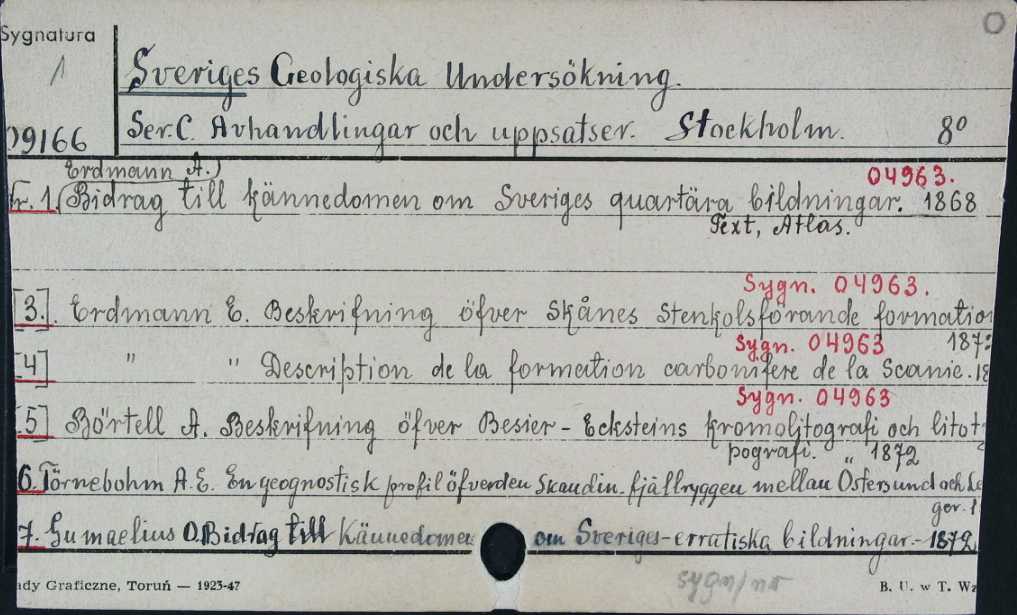 Sygnatura
1
Sveriges Geologiska Undersökning.
09166 Ser. C. Avhandlingar och uppsatser. Stockholm. 8º
Erdmann A.) 04963.
Nr. 1. (Bidrag till kännedomen om Sveriges quartära bildningar. 1868
Text, Atlas.
Sygn. 04963.
[3.] Erdmann E. Beskrifning öfver Skånes Stenkolsförande formation
Sygn. 04963 187
[4] " " Description de la formation carbonifere de la Scanie. 18
Sygn. 04963
[5] Börtell A. Beskrifning öfver Besier-Ecksteins kromolitografi och litoty
pografi. " 1872
6. Törnebohm A.E. En geognostisk profil öfver den Skandin. fjällryggen mellan Östersund och Le
ger. 1
7. Gumaelius O. Bidrag till Kännedomen om Sveriges erratiska bildningar. - 1872
ady Graficzne, Toruń — 1923-47 sygn/nr B. U. w T. Wz